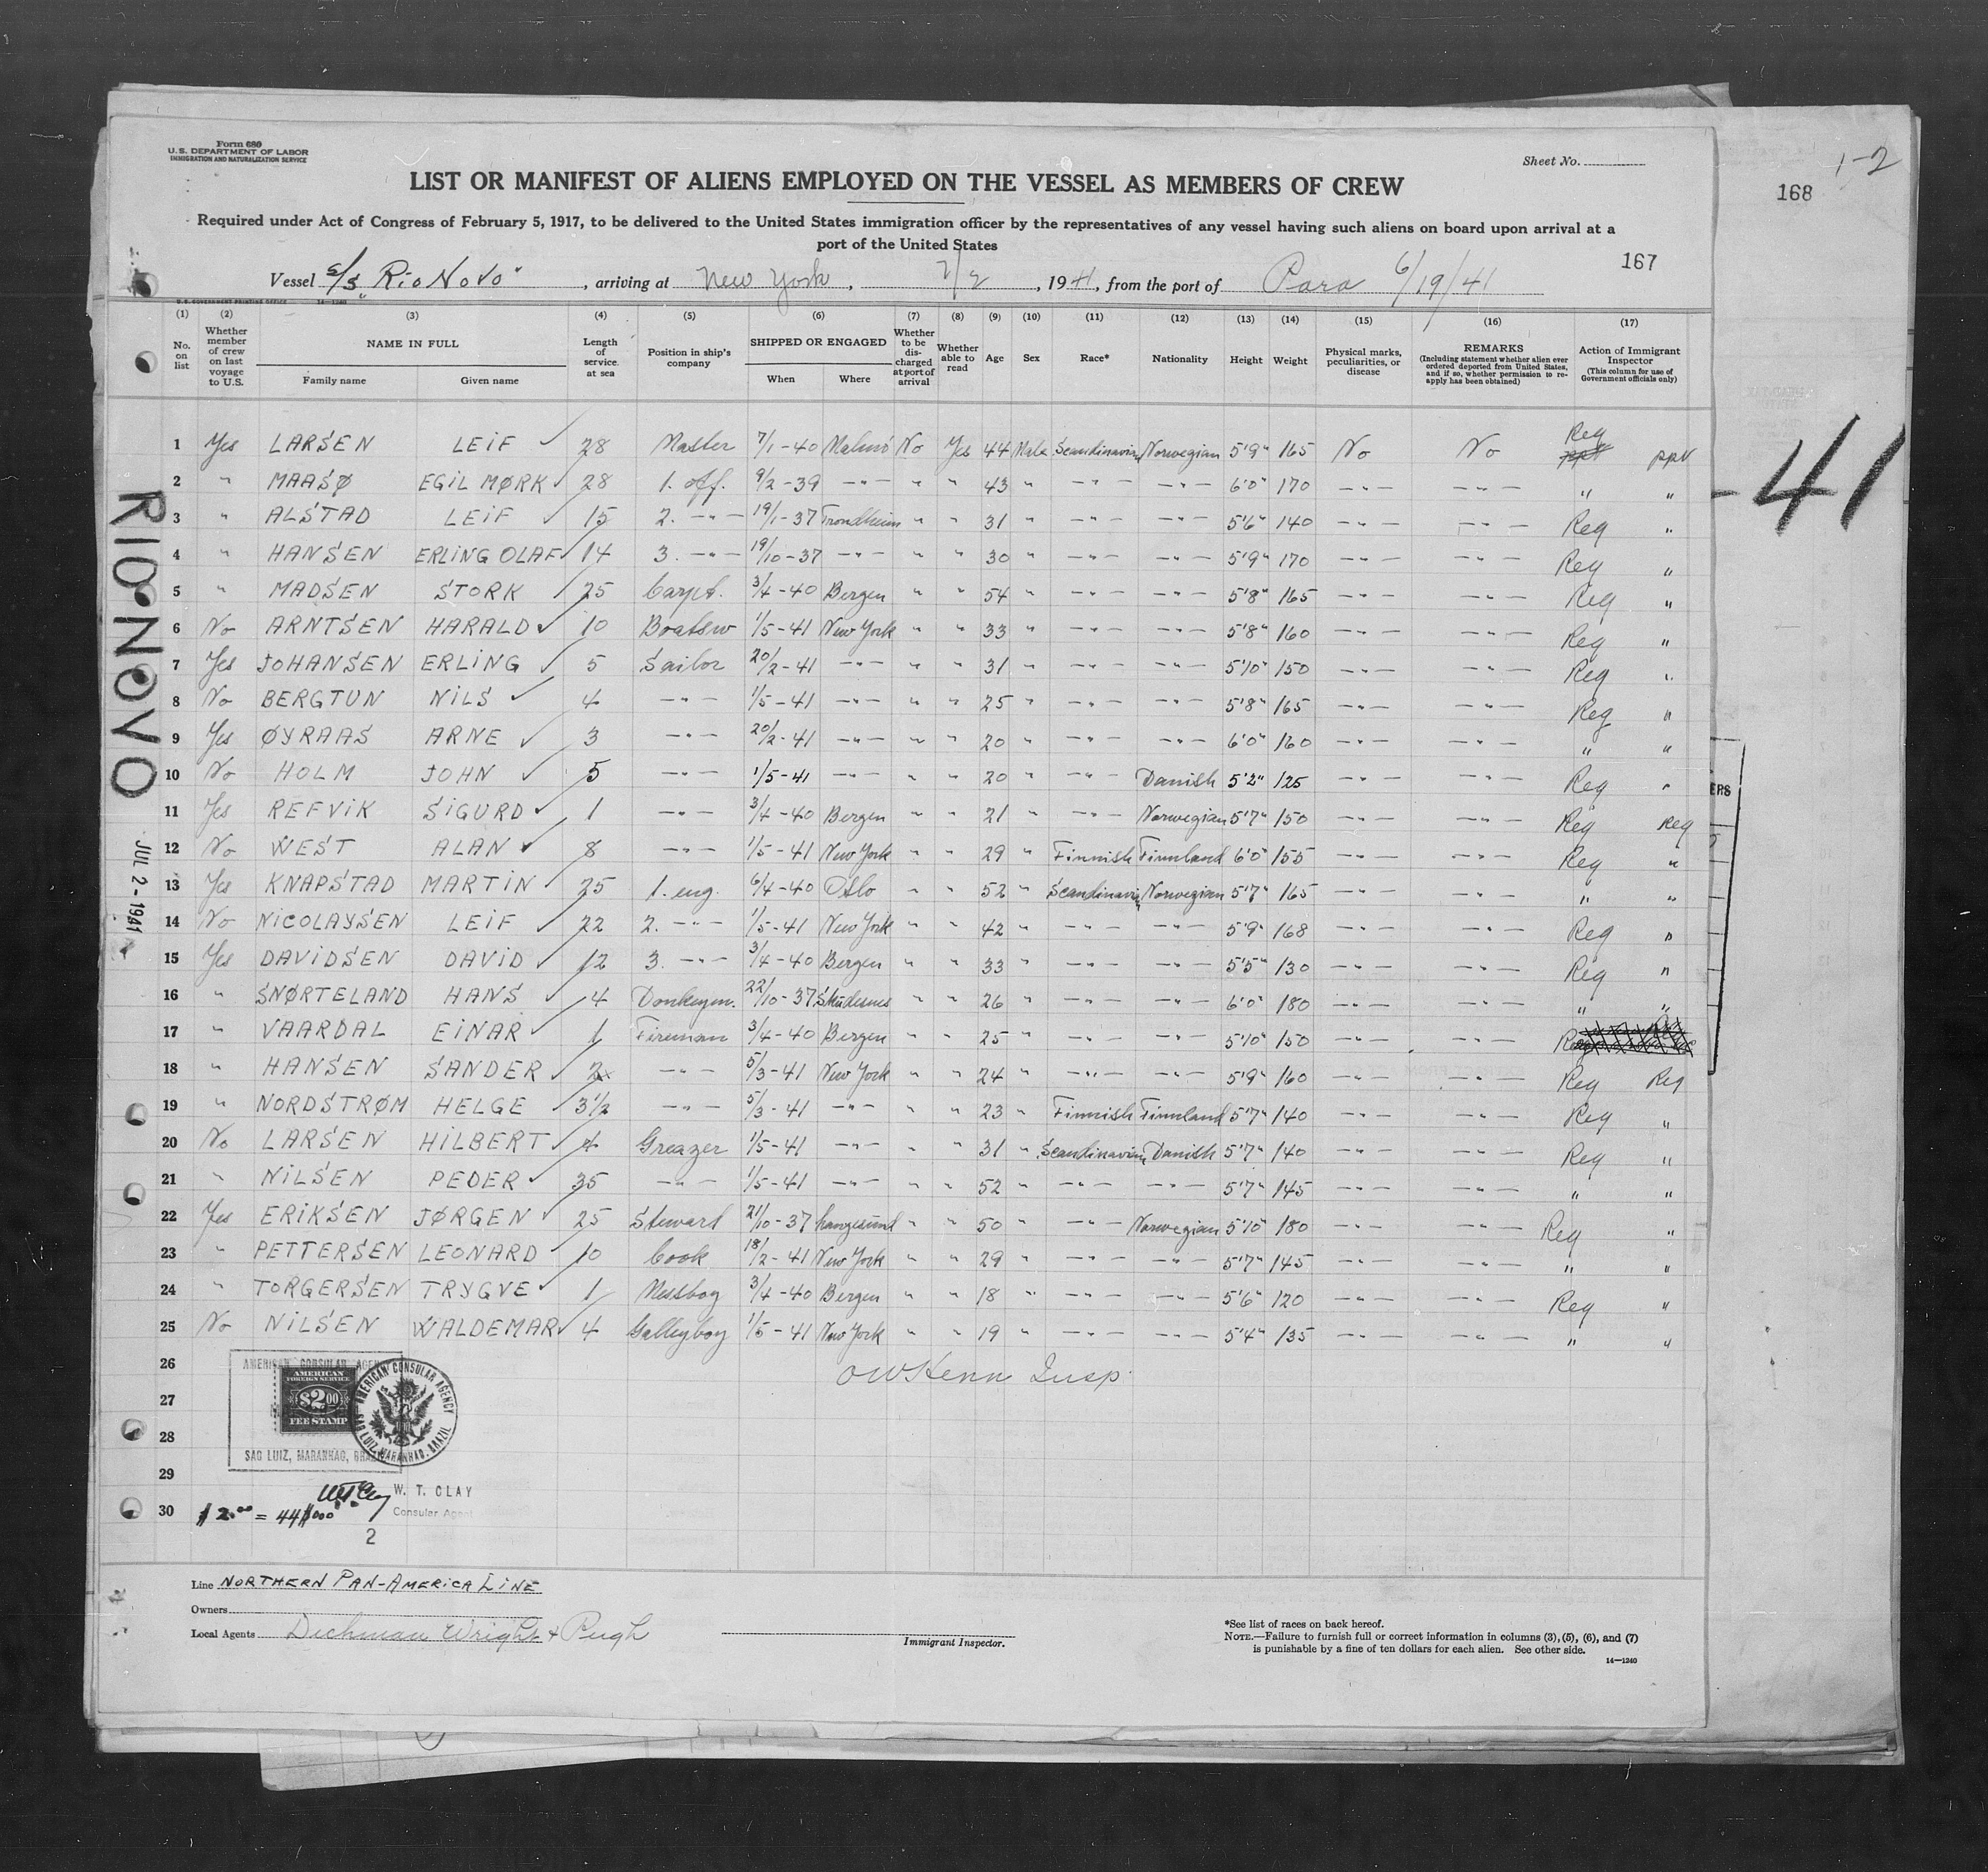 Form 680
U.S. DEPARTMENT OF LABOR
IMMIGRATION AND NATURALIZATION SERVICE
Sheet No.
1-2
168
LIST OR MANIFEST OF ALIENS EMPLOYED ON THE VESSEL AS MEMBERS OF CREW
Required under Act of Congress of February 5, 1917, to be delivered to the United States immigration officer by the representatives of any vessel having such aliens on board upon arrival at a
port of the United States
167
Vessel S/S "Rio Novo", arriving at New York, 7/2, 1941, from the port of Para 6/19/41
U.S. GOVERNMENT PRINTING OFFICE 14-1240
(1) (2) (3) (4) (5) (6) (7) (8) (9) (10) (11) (12) (13) (14) (15) (16) (17)
No. on list
Whether member of crew on last voyage to U.S.
NAME IN FULL
Family name Given name
Length of service at sea
Position in ship's company
SHIPPED OR ENGAGED
When Where
Whether to be discharged at port of arrival
Whether able to read
Age
Sex
Race*
Nationality
Height
Weight
Physical marks, peculiarities, or disease
REMARKS
(Including statement whether alien ever ordered deported from United States, and if so, whether permission to reapply has been obtained)
Action of Immigrant Inspector
(This column for use of Government officials only)
1 Yes LARSEN LEIF 28 Master 7/1-40 Malmö No Yes 44 Male Scandinavian Norwegian 5'9" 165 No No Reg ppv
2 " MAASØ EGIL MØRK 28 1. off. 9/2-39 -"- " " 43 " -"- -"- 6'0" 170 -"- -"- " "
3 " ALSTAD LEIF 15 2. -"- 19/1-37 Trondheim " " 31 " -"- -"- 5'6" 140 -"- -"- Reg "
4 " HANSEN ERLING OLAF 14 3. -"- 19/10-37 -"- " " 30 " -"- -"- 5'9" 170 -"- -"- Reg "
5 " MADSEN STORK 25 Carpt. 3/4-40 Bergen " " 54 " -"- -"- 5'8" 165 -"- -"- Reg "
6 No ARNTSEN HARALD 10 Boatsw 1/5-41 New York " " 33 " -"- -"- 5'8" 160 -"- -"- Reg "
7 Yes JOHANSEN ERLING 5 Sailor 20/2-41 -"- " " 31 " -"- -"- 5'10" 150 -"- -"- Reg "
8 No BERGTUN NILS 4 -"- 1/5-41 -"- " " 25 " -"- -"- 5'8" 165 -"- -"- Reg "
9 Yes ØYRAAS ARNE 3 -"- 20/2-41 -"- " " 20 " -"- -"- 6'0" 160 -"- -"- " "
10 No HOLM JOHN 5 -"- 1/5-41 -"- " " 20 " -"- Danish 5'2" 125 -"- -"- Reg "
11 Yes REFVIK SIGURD 1 -"- 3/4-40 Bergen " " 21 " -"- Norwegian 5'7" 150 -"- -"- Reg Reg
12 No WEST ALAN 8 -"- 1/5-41 New York " " 29 " Finnish Finnland 6'0" 155 -"- -"- Reg "
13 Yes KNAPSTAD MARTIN 25 1. eng. 6/4-40 Oslo " " 52 " Scandinavian Norwegian 5'7" 165 -"- -"- " "
14 No NICOLAYSEN LEIF 22 2. -"- 1/5-41 New York " " 42 " -"- -"- 5'9" 168 -"- -"- Reg "
15 Yes DAVIDSEN DAVID 12 3. -"- 3/4-40 Bergen " " 33 " -"- -"- 5'5" 130 -"- -"- Reg "
16 " SNØRTELAND HANS 4 Donkeym. 22/10-37 Skudesnes " " 26 " -"- -"- 6'0" 180 -"- -"- " "
17 " VAARDAL EINAR 1 Fireman 3/4-40 Bergen " " 25 " -"- -"- 5'10" 150 -"- -"- Reg
18 " HANSEN SANDER 2 -"- 5/3-41 New York " " 24 " -"- -"- 5'9" 160 -"- -"- Reg Reg
19 " NORDSTRØM HELGE 3 1/2 -"- 5/3-41 -"- " " 23 " Finnish Finnland 5'7" 140 -"- -"- Reg "
20 No LARSEN HILBERT 4 Greazer 1/5-41 -"- " " 31 " Scandinavian Danish 5'7" 140 -"- -"- Reg "
21 " NILSEN PEDER 35 -"- 1/5-41 -"- " " 52 " -"- -"- 5'7" 145 -"- -"- " "
22 Yes ERIKSEN JØRGEN 25 Stewart 21/10-37 Langesund " " 50 " -"- Norwegian 5'10" 180 -"- -"- Reg "
23 " PETTERSEN LEONARD 10 Cook 18/2-41 New York " " 29 " -"- -"- 5'7" 145 -"- -"- " "
24 " TORGERSEN TRYGVE 1 Messboy 3/4-40 Bergen " " 18 " -"- -"- 5'6" 120 -"- -"- Reg "
25 No NILSEN WALDEMAR 4 Galleyboy 1/5-41 New York " " 19 " -"- -"- 5'4" 135 -"- -"- " "
26
27
28
29
30
Insp.
RIO NOVO
JUL 2-1941
-41
ERS
AMERICAN CONSULAR AGENCY
AMERICAN
FOREIGN SERVICE
$2.00
FEE STAMP
AMERICAN CONSULAR AGENCY
SAO LUIZ, MARANHAO, BRAZIL
SAO LUIZ, MARANHAO, BRAZIL
W. T. Clay
W. T. CLAY
Consular Agent
$2.00 = 44$000
2
Line NORTHERN PAN-AMERICA LINE
Owners
Local Agents Dichman Wright & Pugh
Immigrant Inspector.
*See list of races on back hereof.
NOTE.—Failure to furnish full or correct information in columns (3), (5), (6), and (7)
is punishable by a fine of ten dollars for each alien. See other side.
14—1240